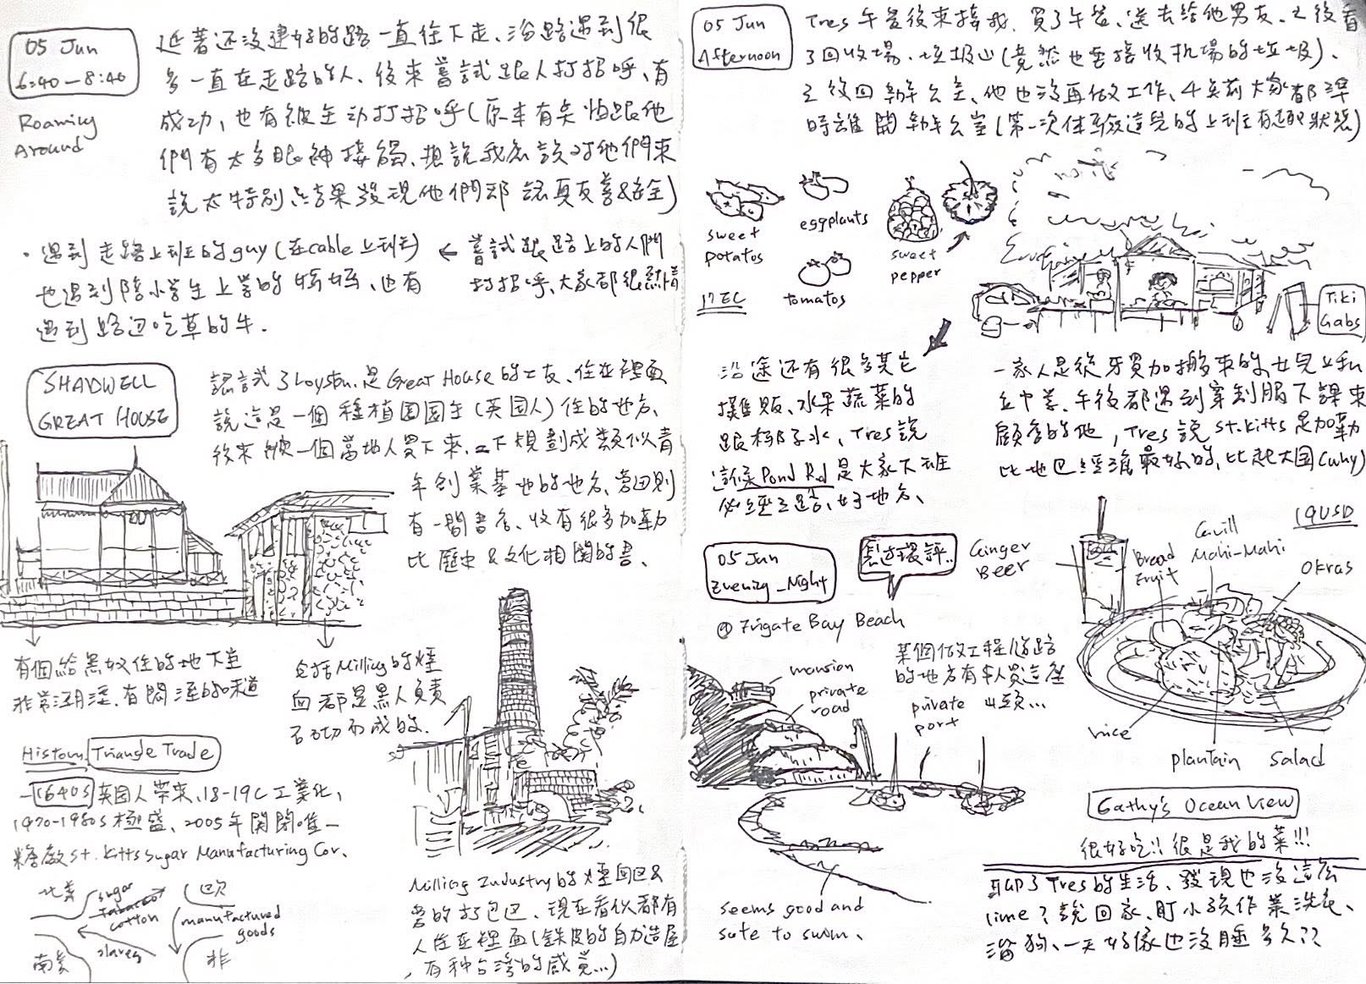 05 Jun
6:40-8:40
Roaming
Around
延著還沒建好的路一直往下走、沿路遇到很
多一直在走路的人、後來嘗試跟人打招呼、有
成功、也有被主動打招呼(原本有點怕跟他
們有太多眼神接觸、想說我應該對他們來
說太特別,結果發現他們都認真友善&安全)
・遇到走路上班的guy(在cable上班)
也遇到陪小學生上學的媽媽、也有
遇到路邊吃草的牛.
← 嘗試跟路上的人們
打招呼、大家都很熱情
SHADWELL
GREAT HOUSE
認識了Loyston.是Great House的工友、住在裡面
說這是一個種植園園主(英国人)住的地方、
後來被一個當地人買下來、規劃成類似青
年創業基地的地方、旁邊則
有一間書店、收有很多加勒
比歷史&文化相關的書、
有個給黑奴住的地下室
非常潮溼、有悶溼的味道
包括Milling的煙
囪都是黑人負責
石切而成的.
History Triangle Trade
1640s 英国人帶來、18-19C工業化、
1970-1980s極盛、2005年関閉唯一
糖廠St. Kitts Sugar Manufacturing Cor.
北美
sugar
tobacco
cotton
欧
manufactured
goods
slaves
南美
非
Milling Industry的煙囪区&
旁的打包区、現在看似都有
人住在裡面(鉄皮的自力造屋
、有种台灣的感覚...)
05 Jun
Afternoon
Tres午餐後來接我、買了午餐、送去給他男友、之後看
了回收場、垃圾山(竟然也要接收机場的垃圾)、
之後回辦公室、他也沒再做工作、4点前大家都準
時離開辦公室(第一次体驗這兒的上班有趣狀態)
sweet
potatos
eggplants
tomatos
sweet
pepper
17 EC
Tiki
Gabs
沿途還有很多其它
攤販、水果蔬菜的
跟椰子水、Tres說
這條Pond Rd是大家下班
必經之路、好地方、
一家人是從牙買加搬來的、女兒上私
立中学、午後都遇到穿制服下課來
顧店的他、Tres說St.kitts是加勒
比地区經濟最好的、比起大国(why)
05 Jun
Evening_Night
惹过環評..
@ Frigate Bay Beach
mansion
private
road
某個做工程修路
的地方有私人買這座
山頭...
private
port
seems good and
safe to swim、
Ginger
Beer
Bread
Fruit
Grill
Mahi-Mahi
19USD
okras
rice
plantain
salad
Cathy's Ocean View
很好吃!! 很是我的菜!!!
剛問了Tres的生活、發現也沒這麼
lime? 說回家、盯小孩作業洗衣、
溜狗、一天好像也沒睡多久??